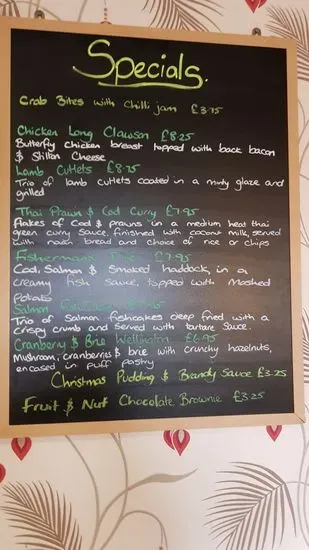 Specials.
Crab Bites with chilli jam £3.75
Chicken Long Clawson £8.25
Butterfly chicken breast topped with back bacon
& Stilton Cheese
Lamb Cutlets £8.75
Trio of lamb cutlets coated in a minty glaze and
grilled
Thai Prawn & Cod Curry £7.95
flakes of Cod & prawns in a medium heat thai
green curry sauce, finished with coconut milk, served
with naan bread and choice of rice or chips
Fishermans £7.95
Cod, Salmon & Smoked haddock, in a
creamy fish sauce, topped with Mashed
Potato
Salmon
Trio of Salmon fishcakes deep fried with a
crispy crumb and served with tartare sauce.
Cranberry & Brie Wellington £6.95
Mushroom, cranberries & brie with crunchy hazelnuts,
encased in puff pastry
Christmas Pudding & Brandy Sauce £3.25
Fruit & Nut Chocolate Brownie £3.25